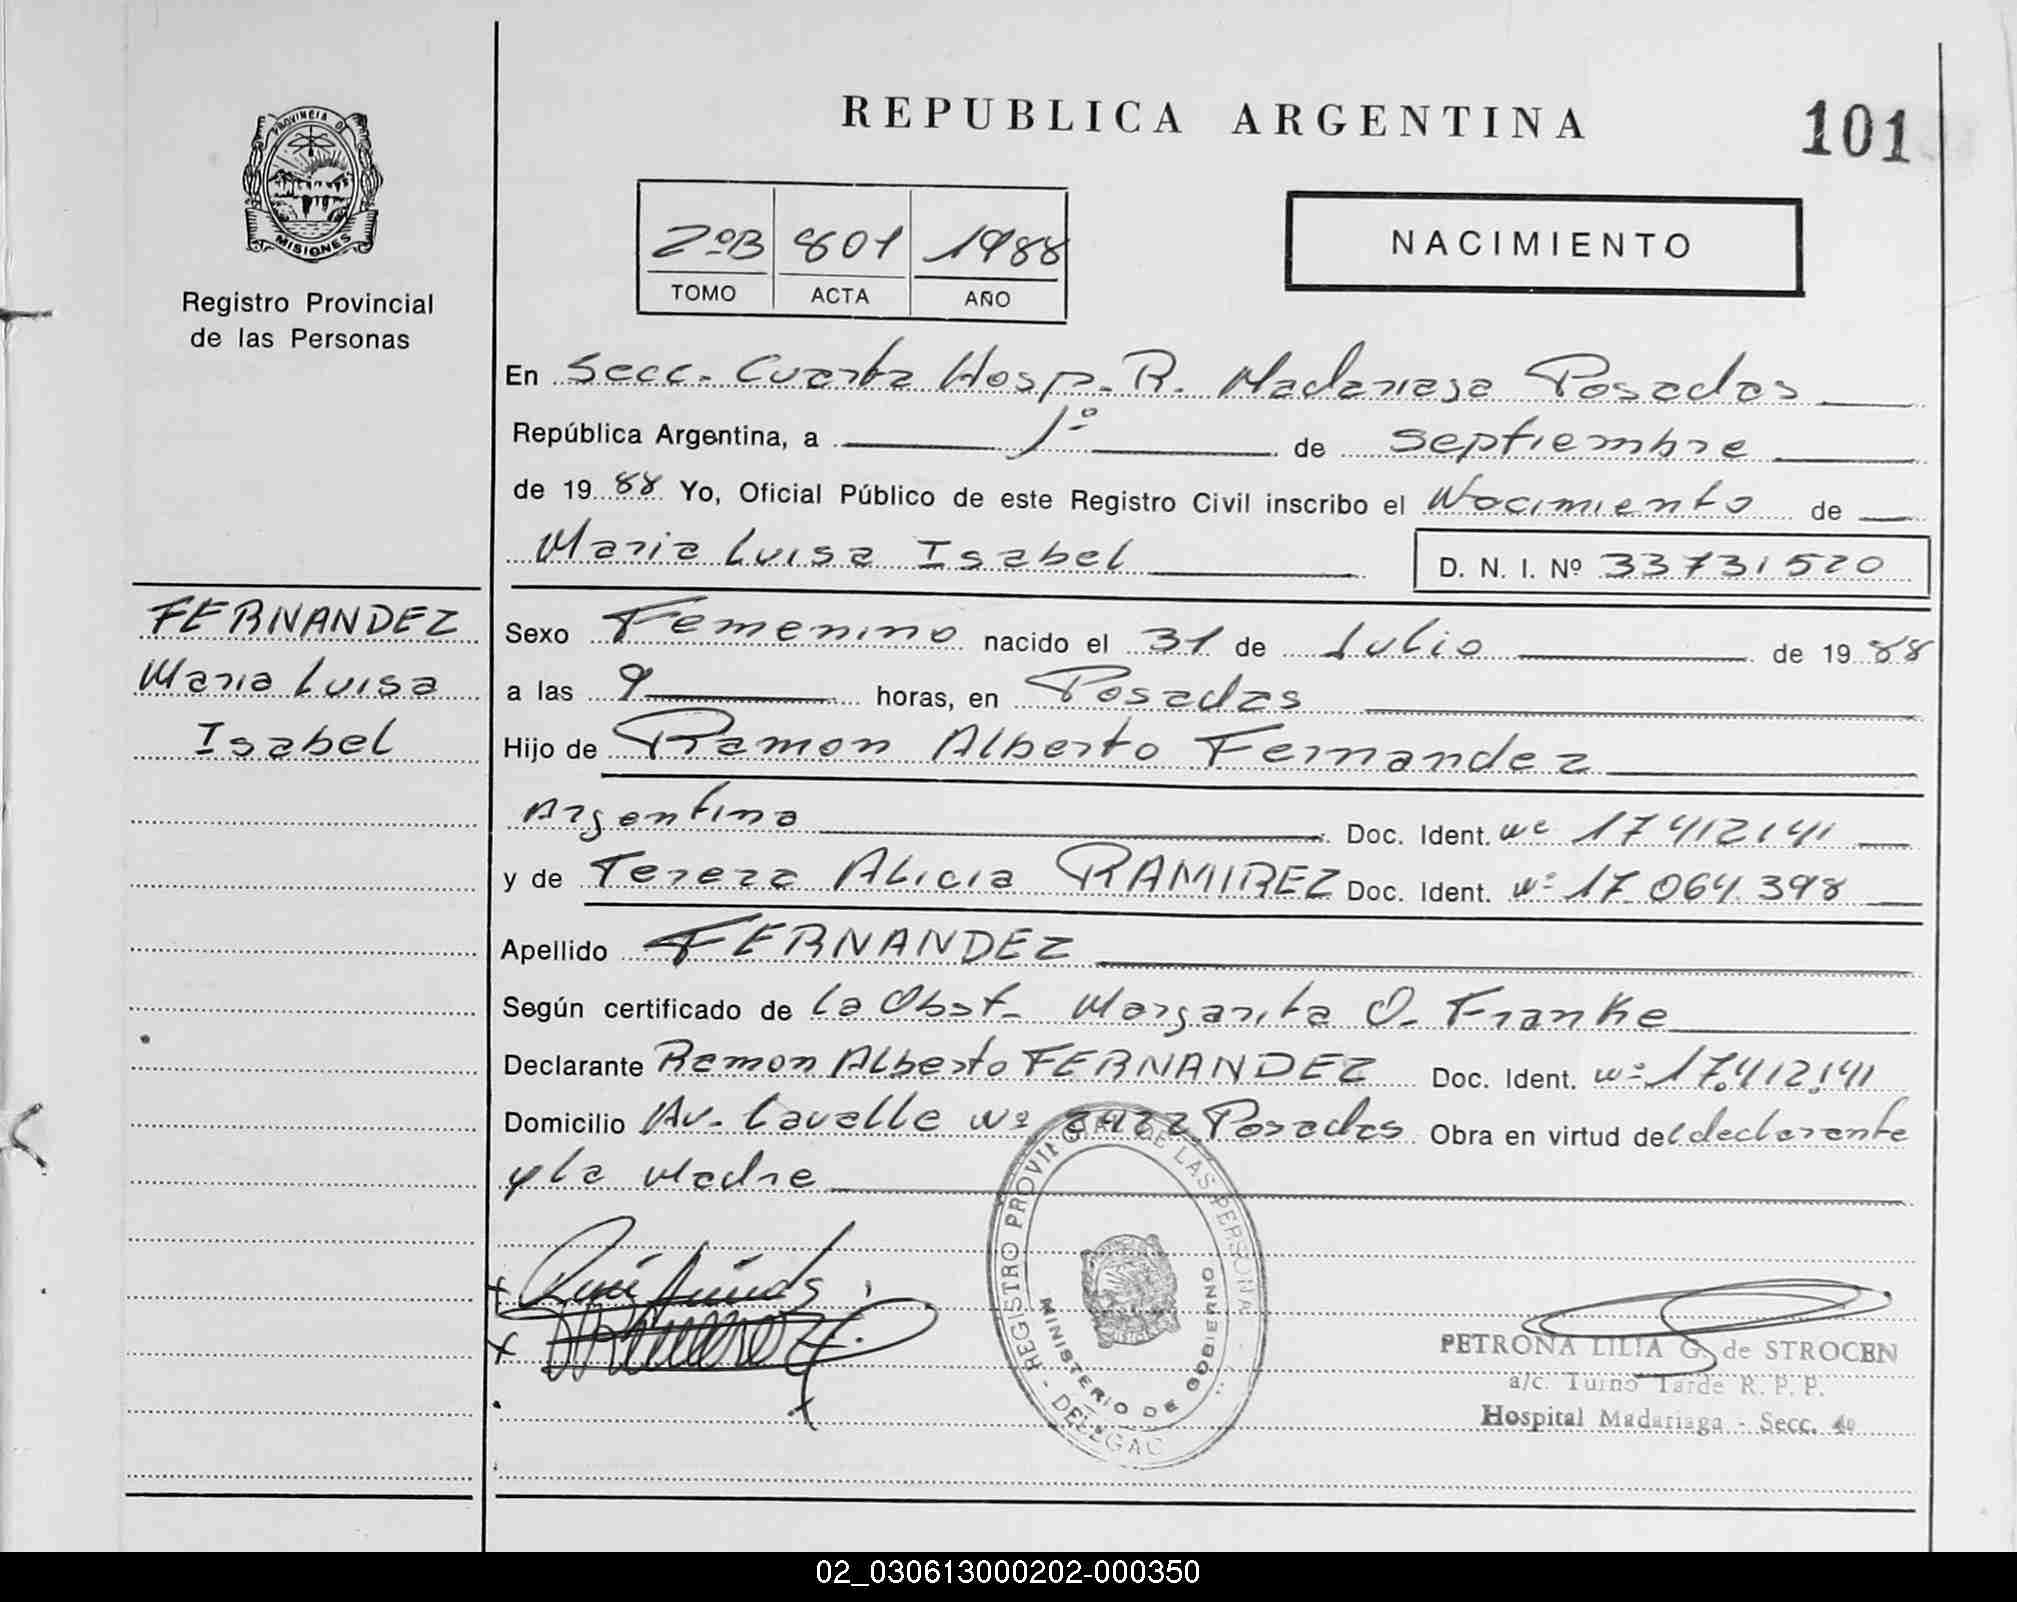 REPUBLICA ARGENTINA
101
PROVINCIA DE
MISIONES
Registro Provincial
de las Personas
2ºB 801 1988
TOMO ACTA AÑO
NACIMIENTO
En Secc. Cuarta Hosp. R. Madariaga Posadas
República Argentina, a 1º de septiembre
de 1988 Yo, Oficial Público de este Registro Civil inscribo el Nacimiento de
Maria Luisa Isabel D. N. I. Nº 33731520
FERNANDEZ
Maria Luisa
Isabel
Sexo Femenino nacido el 31 de Julio de 1988
a las 9 horas, en Posadas
Hijo de Ramon Alberto Fernandez
Argentina Doc. Ident. Nº 17412141
y de Tereza Alicia RAMIREZ Doc. Ident. Nº 17.064.398
Apellido FERNANDEZ
Según certificado de la Obst. Margarita O. Franke
Declarante Ramon Alberto FERNANDEZ Doc. Ident. Nº 17.412.141
Domicilio Av. Lavalle Nº Posadas Obra en virtud del declarante
y la Madre
REGISTRO PROVINCIAL DE LAS PERSONA
MINISTERIO DE GOBIERNO
DELEGAC
PETRONA LILIA G. de STROCEN
a/c. Turno Tarde R. P. P.
Hospital Madariaga - Secc. 4º
02_030613000202-000350